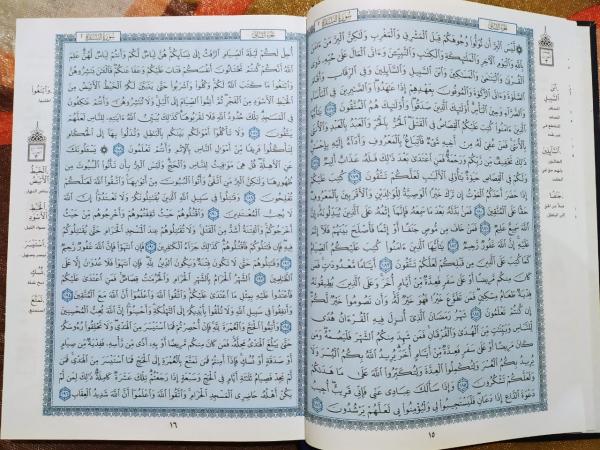 سورة البقرة ٢
الجزء الثاني
ليس البر أن تولوا وجوهكم قبل المشرق والمغرب ولكن البر من ءامن
بالله واليوم الآخر والملائكة والكتاب والنبيين وءاتى المال على حبه ذوي
القربى واليتامى والمساكين وابن السبيل والسائلين وفي الرقاب وأقام
الصلاة وءاتى الزكاة والموفون بعهدهم إذا عاهدوا والصابرين في البأساء
والضراء وحين البأس أولئك الذين صدقوا وأولئك هم المتقون ١٧٧ يأيها
الذين ءامنوا كتب عليكم القصاص في القتلى الحر بالحر والعبد بالعبد والأنثى
بالأنثى فمن عفي له من أخيه شيء فاتباع بالمعروف وأداء إليه بإحسان
ذلك تخفيف من ربكم ورحمة فمن اعتدى بعد ذلك فله عذاب أليم ١٧٨
ولكم في القصاص حياة يأولي الألباب لعلكم تتقون ١٧٩ كتب عليكم
إذا حضر أحدكم الموت إن ترك خيرا الوصية للوالدين والأقربين بالمعروف
حقا على المتقين ١٨٠ فمن بدله بعد ما سمعه فإنما إثمه على الذين يبدلونه إن
الله سميع عليم ١٨١ فمن خاف من موص جنفا أو إثما فأصلح بينهم فلا إثم
عليه إن الله غفور رحيم ١٨٢ يأيها الذين ءامنوا كتب عليكم الصيام
كما كتب على الذين من قبلكم لعلكم تتقون ١٨٣ أياما معدودات فمن
كان منكم مريضا أو على سفر فعدة من أيام أخر وعلى الذين يطيقونه
فدية طعام مسكين فمن تطوع خيرا فهو خير له وأن تصوموا خير لكم
إن كنتم تعلمون ١٨٤ شهر رمضان الذي أنزل فيه القرءان هدى
للناس وبينات من الهدى والفرقان فمن شهد منكم الشهر فليصمه ومن
كان مريضا أو على سفر فعدة من أيام أخر يريد الله بكم اليسر ولا
يريد بكم العسر ولتكملوا العدة ولتكبروا الله على ما هداكم
ولعلكم تشكرون ١٨٥ وإذا سألك عبادي عني فإني قريب أجيب
دعوة الداع إذا دعان فليستجيبوا لي وليؤمنوا بي لعلهم يرشدون ١٨٦
١٥
ابن السبيل
السائلين
جنفا
الجزء الثاني
سورة البقرة ٢
أحل لكم ليلة الصيام الرفث إلى نسائكم هن لباس لكم وأنتم لباس لهن علم
الله أنكم كنتم تختانون أنفسكم فتاب عليكم وعفا عنكم فالآن باشروهن
وابتغوا ما كتب الله لكم وكلوا واشربوا حتى يتبين لكم الخيط الأبيض من
الخيط الأسود من الفجر ثم أتموا الصيام إلى الليل ولا تباشروهن وأنتم عاكفون
في المساجد تلك حدود الله فلا تقربوها كذلك يبين الله ءاياته للناس لعلهم
يتقون ١٨٧ ولا تأكلوا أموالكم بينكم بالباطل وتدلوا بها إلى الحكام
لتأكلوا فريقا من أموال الناس بالإثم وأنتم تعلمون ١٨٨ يسألونك
عن الأهلة قل هي مواقيت للناس والحج وليس البر بأن تأتوا البيوت من
ظهورها ولكن البر من اتقى وأتوا البيوت من أبوابها واتقوا الله لعلكم
تفلحون ١٨٩ وقاتلوا في سبيل الله الذين يقاتلونكم ولا تعتدوا إن الله
لا يحب المعتدين ١٩٠ واقتلوهم حيث ثقفتموهم وأخرجوهم من حيث
أخرجوكم والفتنة أشد من القتل ولا تقاتلوهم عند المسجد الحرام حتى يقاتلوكم
فيه فإن قاتلوكم فاقتلوهم كذلك جزاء الكافرين ١٩١ فإن انتهوا فإن الله غفور رحيم
١٩٢ وقاتلوهم حتى لا تكون فتنة ويكون الدين لله فإن انتهوا فلا عدوان إلا على
الظالمين ١٩٣ الشهر الحرام بالشهر الحرام والحرمات قصاص فمن اعتدى عليكم
فاعتدوا عليه بمثل ما اعتدى عليكم واتقوا الله واعلموا أن الله مع المتقين ١٩٤
وأنفقوا في سبيل الله ولا تلقوا بأيديكم إلى التهلكة وأحسنوا إن الله يحب المحسنين
١٩٥ وأتموا الحج والعمرة لله فإن أحصرتم فما استيسر من الهدي ولا تحلقوا رءوسكم
حتى يبلغ الهدي محله فمن كان منكم مريضا أو به أذى من رأسه ففدية من صيام
أو صدقة أو نسك فإذا أمنتم فمن تمتع بالعمرة إلى الحج فما استيسر من الهدي فمن
لم يجد فصيام ثلاثة أيام في الحج وسبعة إذا رجعتم تلك عشرة كاملة ذلك لمن لم
يكن أهله حاضري المسجد الحرام واتقوا الله واعلموا أن الله شديد العقاب ١٩٦
١٦
وابتغوا
الخيط الأبيض
الخيط الأسود
استيسر
نسك
تمتع